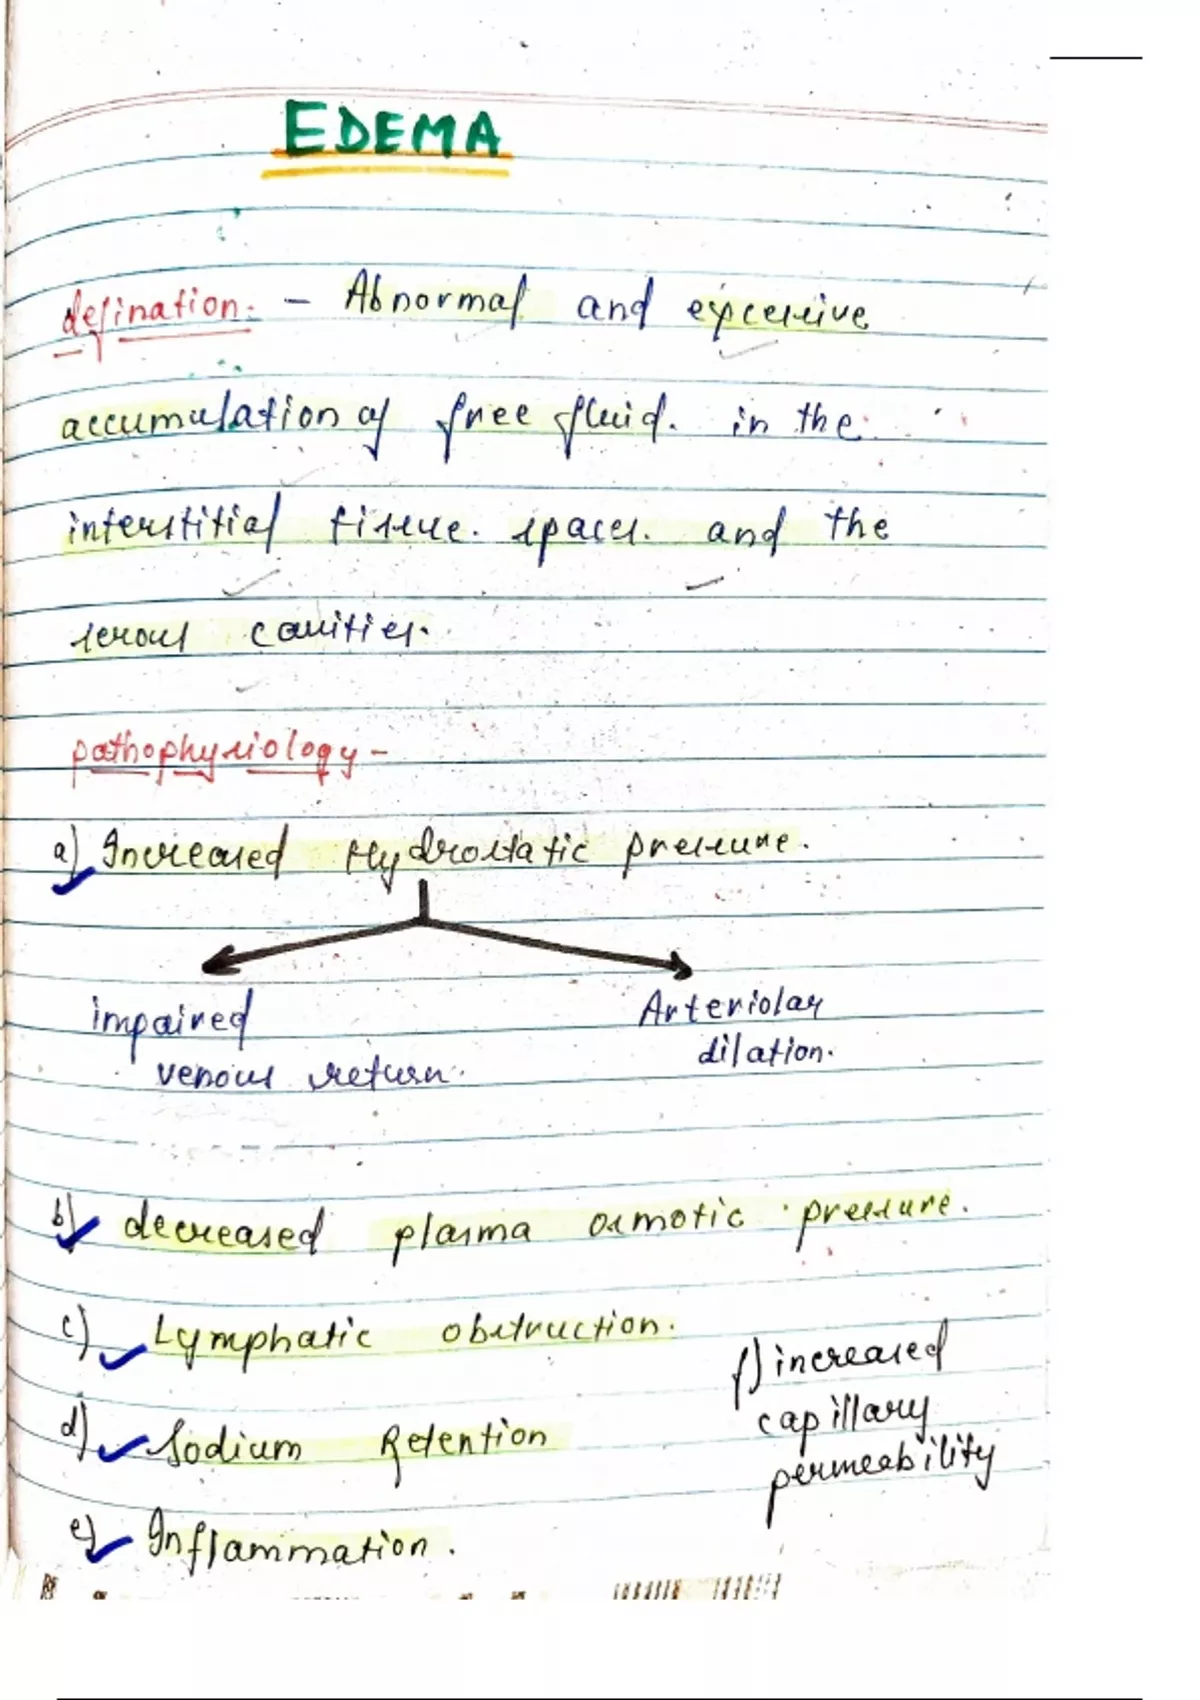 EDEMA
defination: - Abnormal and excessive
accumulation of free fluid. in the
interstitial tissue. spaces. and the
serous cavities.
pathophysiology -
a) Increased Hydrostatic pressure.
impaired
venous return.
Arteriolar
dilation.
b) decreased plasma osmotic pressure.
c) Lymphatic obstruction.
d) Sodium Retention
e) Inflammation.
f) increased
capillary
permeability